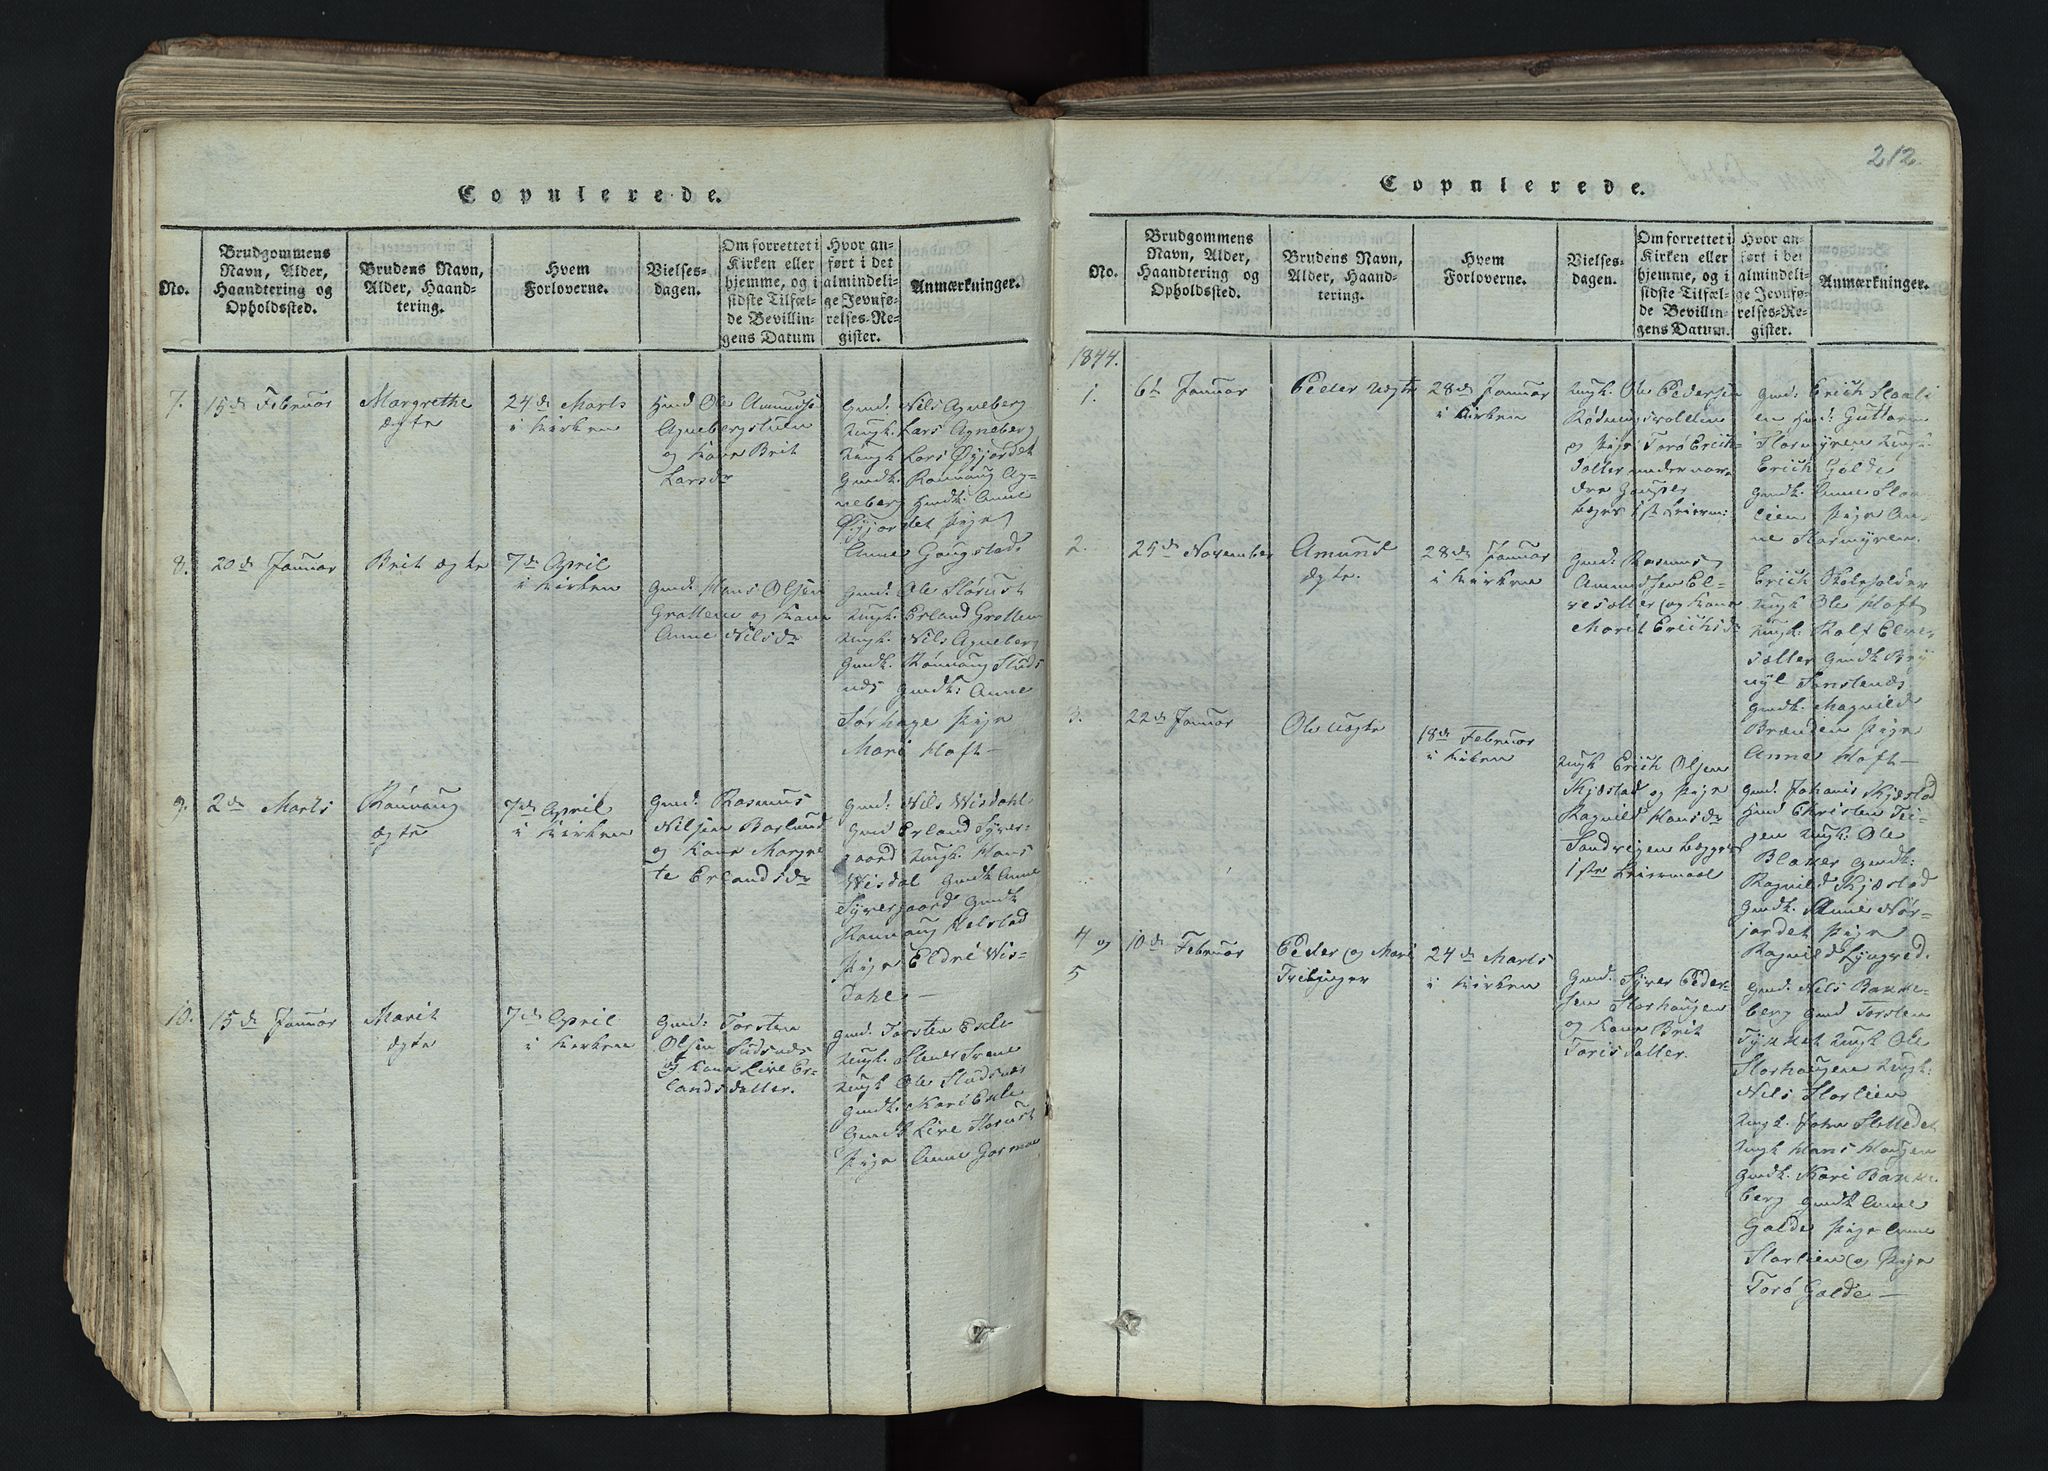 Copulerede.
No.
Brudgommens
Navn, Alder,
Haandtering og
Opholdssted.
Brudens Navn,
Alder, Haand-
tering.
Hvem
Forloverne.
Vielses-
dagen.
Om forrettet i
Kirken eller
hjemme, og i
sidste Tilfæl-
de Bevillin-
gens Datum
Hvor an-
ført i det
almindeli-
ge Jevnfø-
relses-Re-
gister.
Anmærkninger.
7.
15de Februar
Margrethe
ægte
24de Marts
i Kirken
Hmd Ole Amunds:
Agnebergstuen
og Kone Brit
Larsdr
Gmd: Nils Agneberg
Ungk. Lars Agneberg
Ungk Lars Øyjordet
Gmdk. Rønnoug Ag-
neberg Hmdk: Anne
Øyjordet Pige
Anne Gaugstad
8.
20de Januar
Brit ægte
7de April
i Kirken
Gmd: Hans Olsen
Grotten og Kone
Anne Nilsdr
Gmd: Ole Storust
Ungk. Erland Grotten
Ungk. Nils Agneberg
Gmdk. Rønnoug Suds
næs Gmdk: Anne
Sørhage Pige
Mari Hoft —
9.
2de Marts
Rønnoug
ægte
7de April
i Kirken
Gmd: Rasmus
Nilsen Barlund
og Kone Margre
te Erlandsdr
Gmd: Nils Wisdahl
Gmd Erland Syver-
gaard Ungk. Hans
Wisdal Gmdk Anne
Syvergaard Gmdk
Rønnoug Helstad
Pige Eldri Wis-
dahl —
10.
15de Januar
Marit
ægte
7de April
i Kirken
Gmd: Torsten
Olsen Sudsnæs
og Kone Live Er-
landsdatter.
Gmd: Torsten Exle
Ungk. Stener
Ungk Ole Sudsnæs
Gmdk. Kari Exle
Gmdk Live Storust
Pige Anne
212.
Copulerede.
No.
Brudgommens
Navn, Alder,
Haandtering og
Opholdssted.
Brudens Navn,
Alder, Haand-
tering.
Hvem
Forloverne.
Vielses-
dagen.
Om forrettet i
Kirken eller
hjemme, og i
sidste Tilfæl-
de Bevillin-
gens Datum.
Hvor an-
ført i det
almindeli-
ge Jevnfø-
relses-Re-
gister.
Anmærkninger.
1844.
1.
6te Januar
Peder uægte
28de Januar
i Kirken
Ungk. Ole Pedersen
Rødningsvollen
og Pige Torø Erich-
datter
begges 1ste Leierm:
Gmd: Erich Staali
en Gmd: Guttorm
Stormyren Ungk:
Erich Galde
Gmdk. Anne Staa-
lien Pige An-
ne Stormyren.
2.
25de November
Amund
ægte.
28de Januar
i Kirken
Gmd: Rasmus
Amundsen El-
vesætter og Kone
Marit Erichsdr
Erich
Ungk Ole Hoft
Ungk: Rolf Elve-
sætter Gmdk Bry
nyl
Gmdk. Magnild
Brænden Pige
Anne Hoft —
3.
22de Januar
Ole uægte
18de Februar
i Kirken
Ungk Erich Olsen
Kjæstad og Pige
Ragnild Hansdr
Sandvigen begges
1ste Leiermaal
Gmd: Johanis Kjæstad
Gmd Christen Tei-
gen Ungk: Ole
Blaker Gmdk:
Ragnild Kjæstad
Gmdk. Anne Nør-
jordet Pige
Ragnild Lyngved.
4 og
5
10de Februar
Peder og Mari
Tvillinger
24de Marts
i Kirken
Gmd. Syver Peder-
sen Storhaugen
og Kone Brit
Torisdatter.
Gmd. Nels Bakke-
berg Gmd Torsten
Ungk Ole
Storhaugen Ungk.
Nels Storlien
Ungk. John Slettedet
Ungk Hans Haugen
Gmdk. Kari Bakke
berg Gmdk Anne
Galde Pige Anne
Storlien og Pige
Torø Galde —